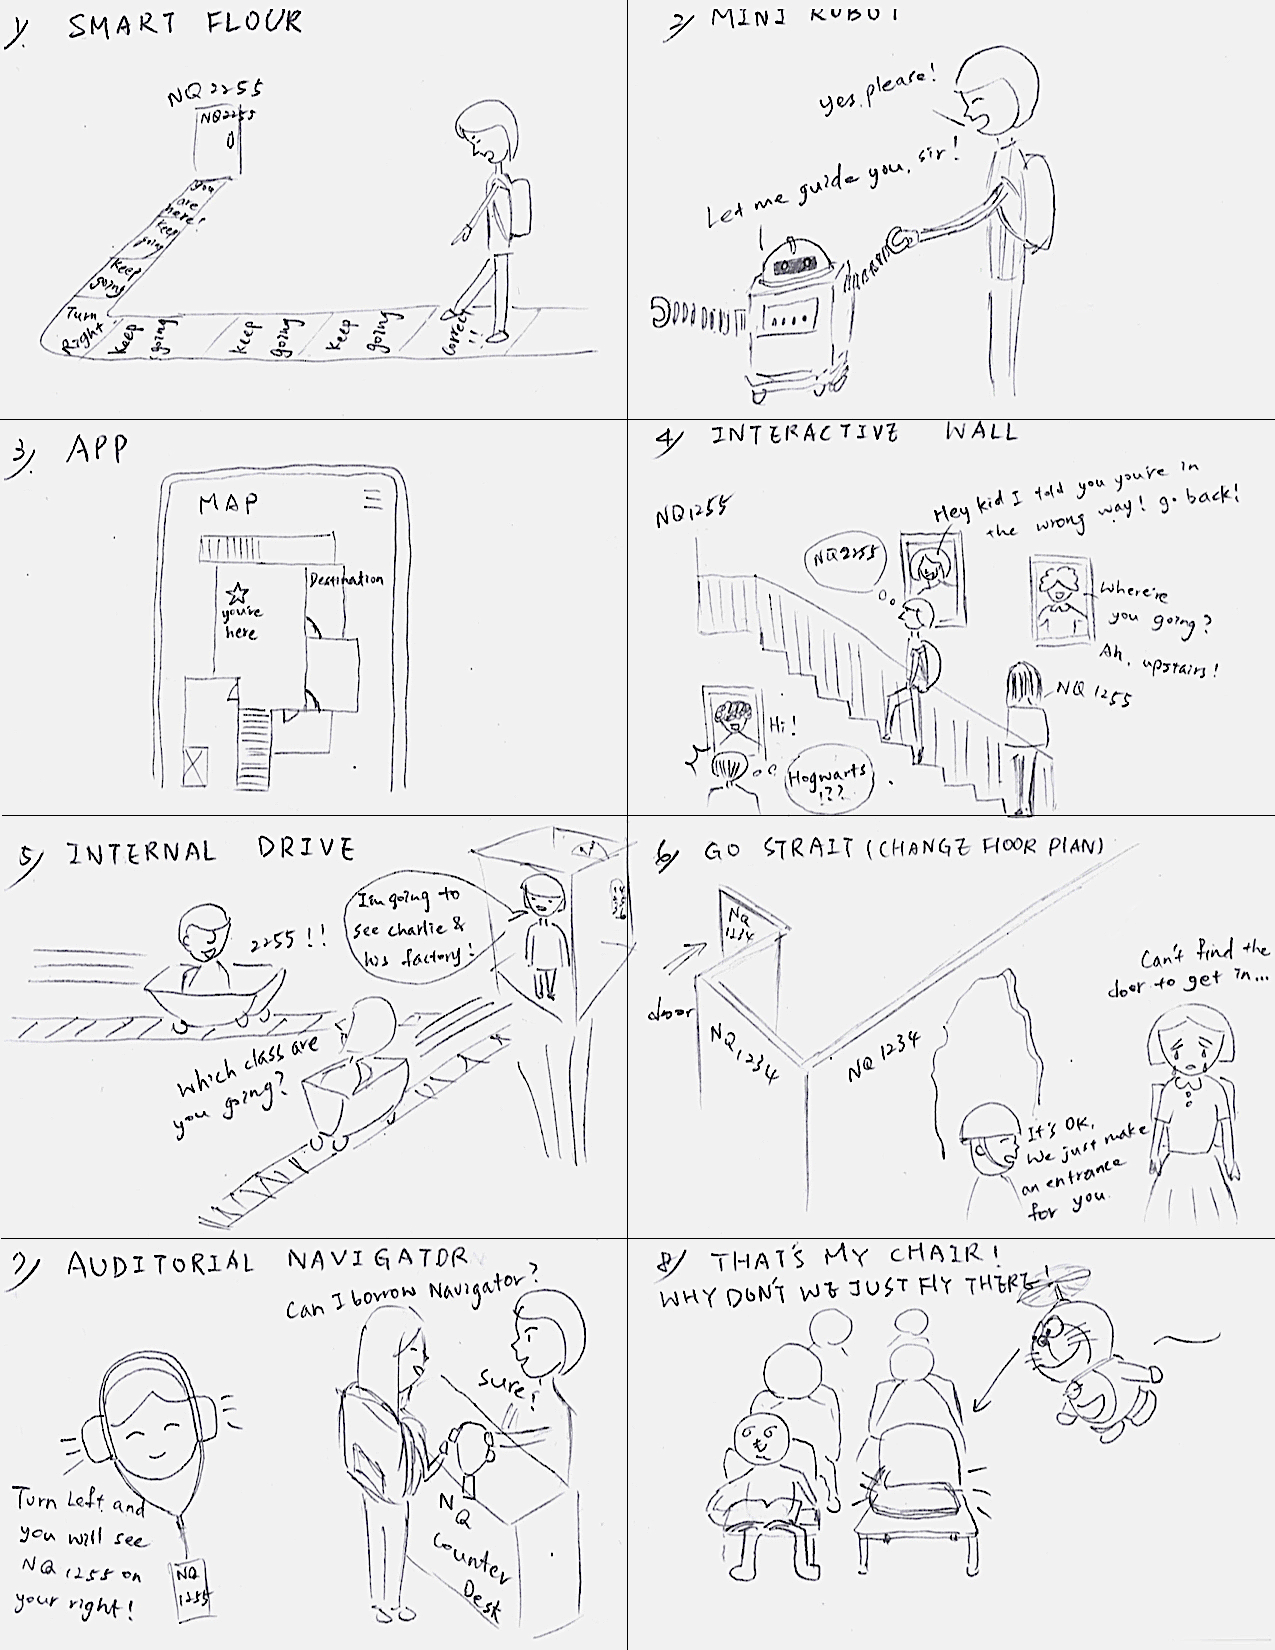 1/ SMART FLOUR
NQ2255
NQ2255
you
are
here!
keep
going
keep
going
Turn
Right
keep
going
keep
going
keep
going
Correct
!!
2/ MINI ROBOT
yes, please!
Let me guide you, sir!
3/ APP
MAP
Destination
you're
here
4/ INTERACTIVE WALL
NQ1255
Hey kid I told you you're in
the wrong way! go back!
NQ2255
Where're
you going?
Ah, upstairs!
NQ 1255
Hi!
Hogwarts
!??
5/ INTERNAL DRIVE
2255!!
I'm going to
see Charlie &
his factory!
Which class are
you going?
6/ GO STRAIT (CHANGE FLOOR PLAN)
NQ
1234
door
NQ 1234
NQ 1234
Can't find the
door to get in...
It's OK,
We just make
an entrance
for you.
7/ AUDITORIAL NAVIGATOR
Can I borrow Navigator?
Sure!
Turn Left and
you will see
NQ 1255 on
your right!
NQ
1255
NQ
Counter
Desk
8/ THAT'S MY CHAIR!
WHY DON'T WE JUST FLY THERE!